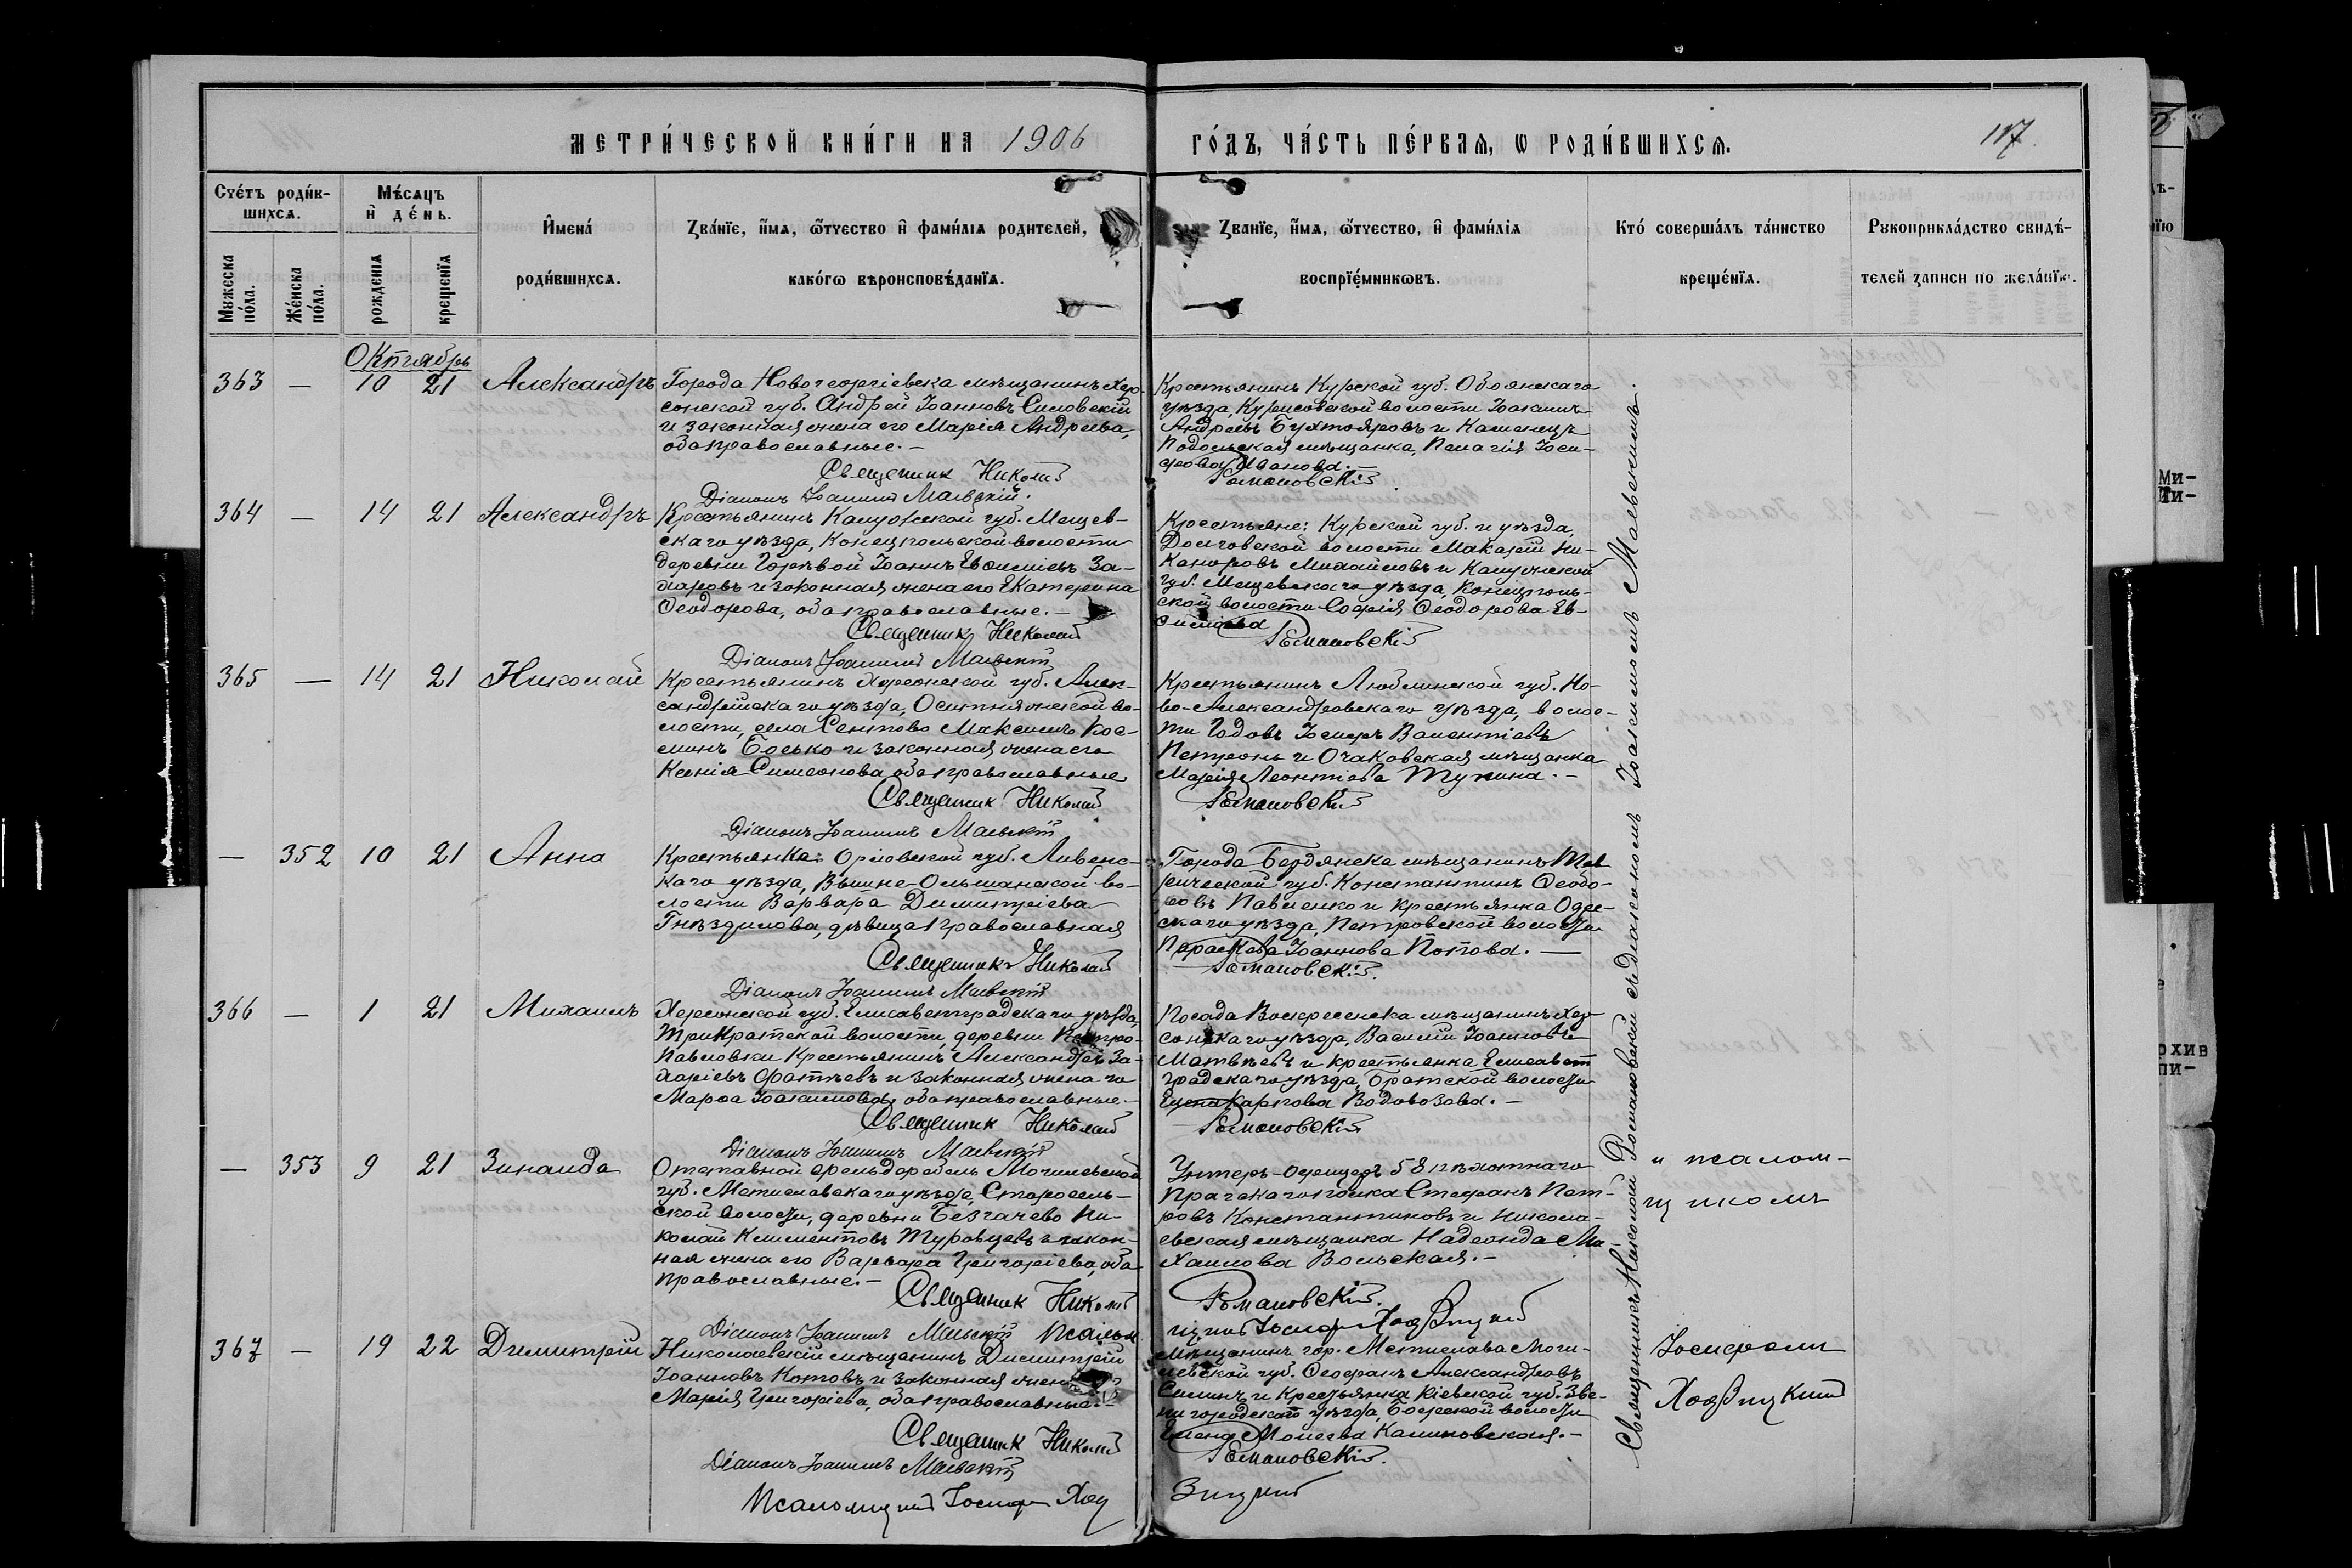 МЕТРИ́ЧЕСКОЙ КНИ́ГИ НА 1906 ГО́ДЪ, ЧА́СТЬ ПЕ́РВАЯ, Ѡ РОДИ́ВШИХСЯ.
117
Сче́тъ роди́в-
шихся.
Мꙋжеска по́ла.
Же́нска по́ла.
Мѣ́сяцъ и де́нь.
рожденія
крещенїя
Имена́
роди́вшихся.
Зва́нїе, и́мя, о́тчество и фами́лія родителей, и
како́гѡ вѣроисповѣ́данїя.
Званїе, и́мя, о́тчество, и фами́лія
воспрїе́мникѡвъ.
Кто́ соверша́лъ та́инство
креще́нїя.
Рꙋкоприкла́дство свидѣ́-
телей записи по жела́нїю.
Октябрь
363 — 10 21 Александръ
Города Новогеоргіевска мѣщанинъ Хер-
сонской губ. Андрей Іоанновъ Силовскій
и законная жена его Марія Андреева,
оба православные. —
Священникъ Николай
Діаконъ Іоакимъ Маевскій.
Крестьянинъ Курской губ. Обоянскаго
уѣзда, Курасовской волости Іоакимъ
Андреевъ Бухтояровъ и Каменецъ
Подольская мѣщанка, Пелагія Іоси-
фова Иванова. —
Романовскій
364 — 14 21 Александръ
Крестьянинъ Калужской губ. Мещев-
скаго уѣзда, Конецпольской волости
деревни Горѣвой Іоаннъ Евсиміевъ За-
харовъ и законная жена его Екатерина
Ѳеодорова, оба православные. —
Священникъ Николай
Діаконъ Іоакимъ Маевскій
Крестьяне: Курской губ. и уѣзда,
Долговской волости Макарій Ни-
каноровъ Михайловъ и Калужской
губ. Мещевскаго уѣзда, Конецполь-
ской волости Софія Ѳеодорова Ев-
Романовскій
365 — 14 21 Николай
Крестьянинъ Херсонской губ. Алек-
сандрійскаго уѣзда, Оситняжской во-
лости, села Сентово Максимъ Кос-
минъ Босько и законная жена его
Ксенія Симеонова, оба православные
Священникъ Николай
Діаконъ Іоакимъ Маевскій
Крестьянинъ Люблинской губ. Но-
во-Александровскаго уѣзда, волос-
ти Годовъ Іосифъ Валентіевъ
Петронь и Очаковская мѣщанка
Марія Леонтіева Тупина. —
Романовскій
— 352 10 21 Анна
Крестьянка: Орловской губ. Ливенс-
каго уѣзда, Вышне-Ольшанской во-
лости Варвара Димитріева
Гнѣздилова, дѣвица православная
Священникъ Николай
Діаконъ Іоакимъ Маевскій
Города Бердянска мѣщанинъ Тав-
рической губ. Константинъ Ѳеодо-
ровъ Павленко и крестьянка Одес-
скаго уѣзда, Петровской волости
Параскева Іоаннова Попова. —
Романовскій.
366 — 1 21 Михаилъ
Херсонской губ. Елисаветградскаго уѣзда,
Трикратской волости, деревни Петро-
Павловки крестьянинъ Александръ За-
харіевъ Фатѣевъ и законная жена его
Марѳа Іоакимова, оба православные. —
Священникъ Николай
Діаконъ Іоакимъ Маевскій
Посада Воскресенска мѣщанинъ Хер-
сонскаго уѣзда, Василій Іоанновъ
Матвѣевъ и крестьянка Елисавет
градскаго уѣзда, Братской волости
Карпова Водовозова. —
Романовскій
— 353 9 21 Зинаида
Отставной фельдфебель Могилевской
губ. Мстиславскаго уѣзда, Старосель-
ской волости, деревни Безгачево Ни-
колай Климентовъ Туровцевъ и закон-
ная жена его Варвара Григоріева, оба
православные. —
Священникъ Николай
Діаконъ Іоакимъ Маевскій Псалом
Унтеръ-офицеръ 58 пѣхотнаго
Прагскаго полка Стефанъ Пет-
ровъ Константиновъ и Никола-
евская мѣщанка Надежда Ми-
хаилова Вольская. —
Романовскій.
щикъ Іосифъ Ходзицкій
367 — 19 22 Димитрій
Николаевскій мѣщанинъ Димитрій
Іоанновъ Котовъ и законная жена его
Марія Григоріева, оба православные. —
Священникъ Николай
Діаконъ Іоакимъ Маевскій
Псаломщикъ Іосифъ Ход
Мѣщанинъ гор. Мстислава Моги-
левской губ. Ѳеофанъ Александровъ
Силинъ и крестьянка Кіевской губ. Зве-
нигородскаго уѣзда, волости
Елена Моисеева Калиновская. —
Романовскій.
зицкій
Священникъ Николай Романовскій съ діакономъ Іоакимомъ Маевскимъ.
и псалом-
щикомъ
Іосифомъ
Ходзицкимъ